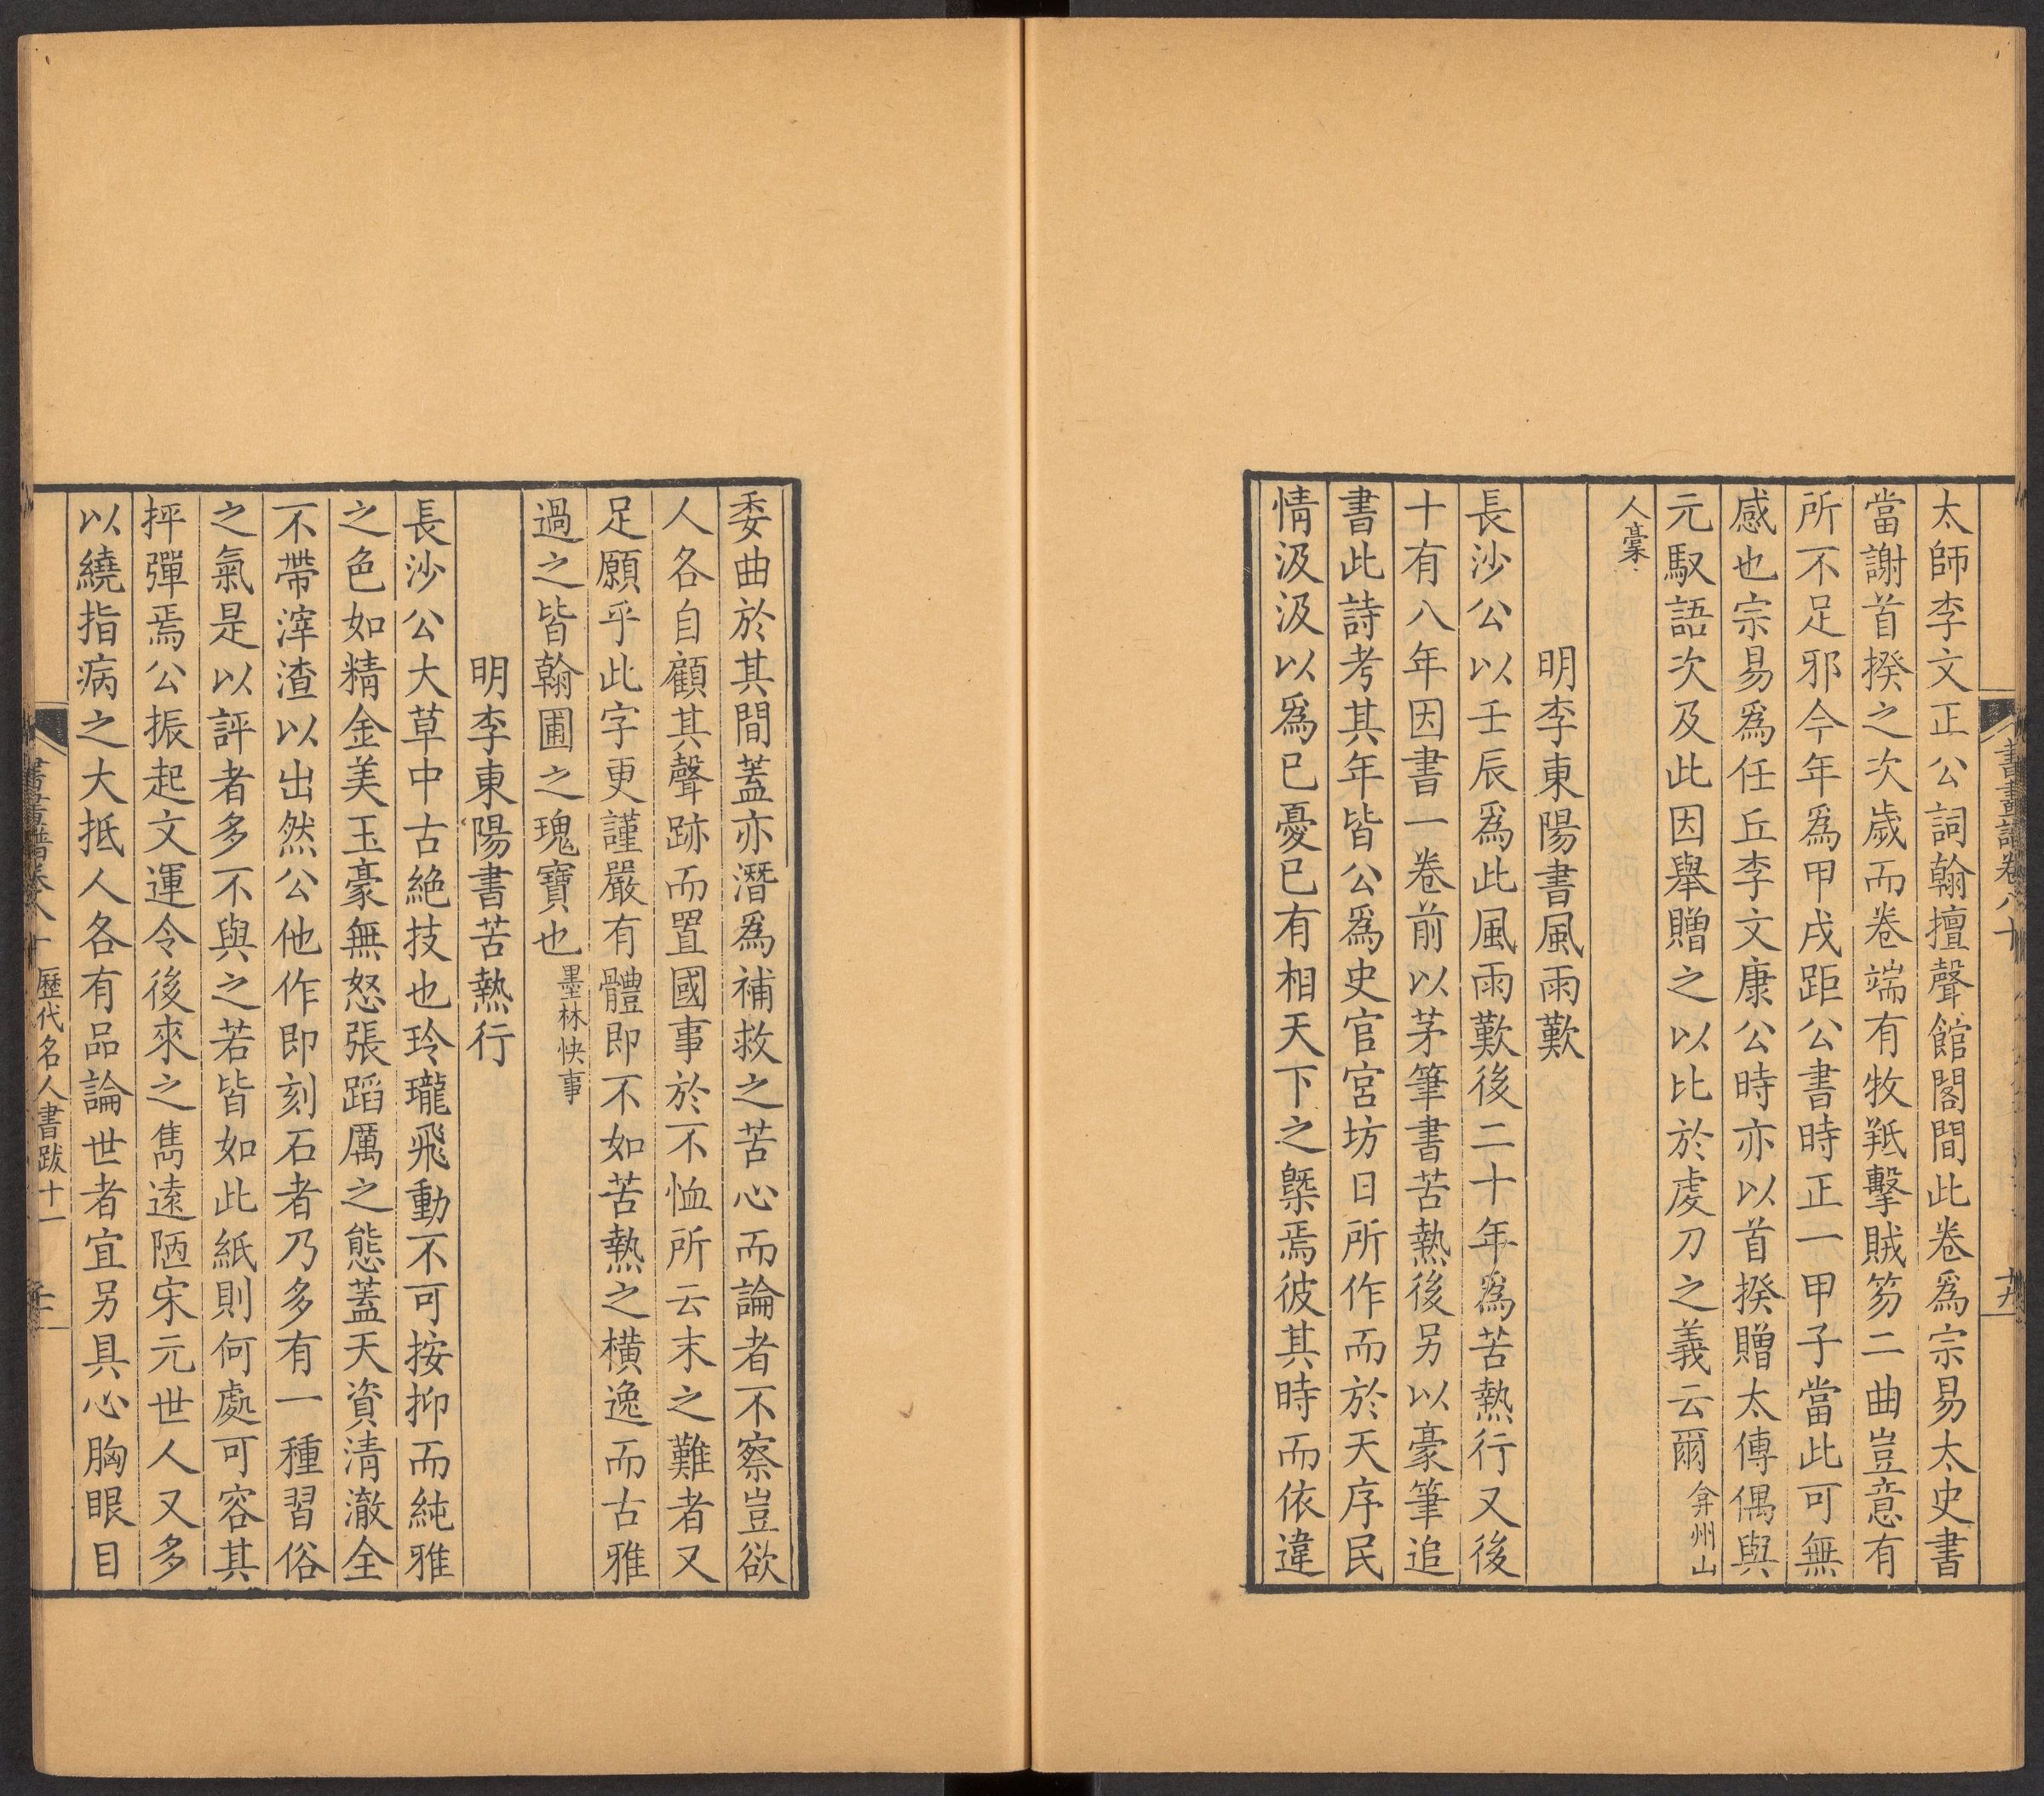 太師李文正公詞翰擅聲館閣間此卷爲宗易太史書
當謝首揆之次歲而卷端有牧羝擊賊笏二曲豈意有
所不足邪今年爲甲戌距公書時正一甲子當此可無
感也宗易爲任丘李文康公時亦以首揆贈太傅偶與
元馭語次及此因舉贈之以比於虔刀之義云爾弇州山
人稾
明李東陽書風雨歎
長沙公以壬辰爲此風雨歎後二十年爲苦熱行又後
十有八年因書一卷前以茅筆書苦熱後另以豪筆追
書此詩考其年皆公爲史官宮坊日所作而於天序民
情汲汲以爲已憂已有相天下之槩焉彼其時而依違
委曲於其間蓋亦潛爲補救之苦心而論者不察豈欲
人各自顧其聲跡而置國事於不恤所云末之難者又
足願乎此字更謹嚴有體即不如苦熱之橫逸而古雅
過之皆翰圃之瑰寶也墨林快事
明李東陽書苦熱行
長沙公大草中古絶技也玲瓏飛動不可按抑而純雅
之色如精金美玉豪無怒張蹈厲之態蓋天資清澈全
不帶滓渣以出然公他作即刻石者乃多有一種習俗
之氣是以評者多不與之若皆如此紙則何處可容其
抨彈焉公振起文運令後來之雋遠陋宋元世人又多
以繞指病之大抵人各有品論世者宜另具心胸眼目
歷代名人書跋十一